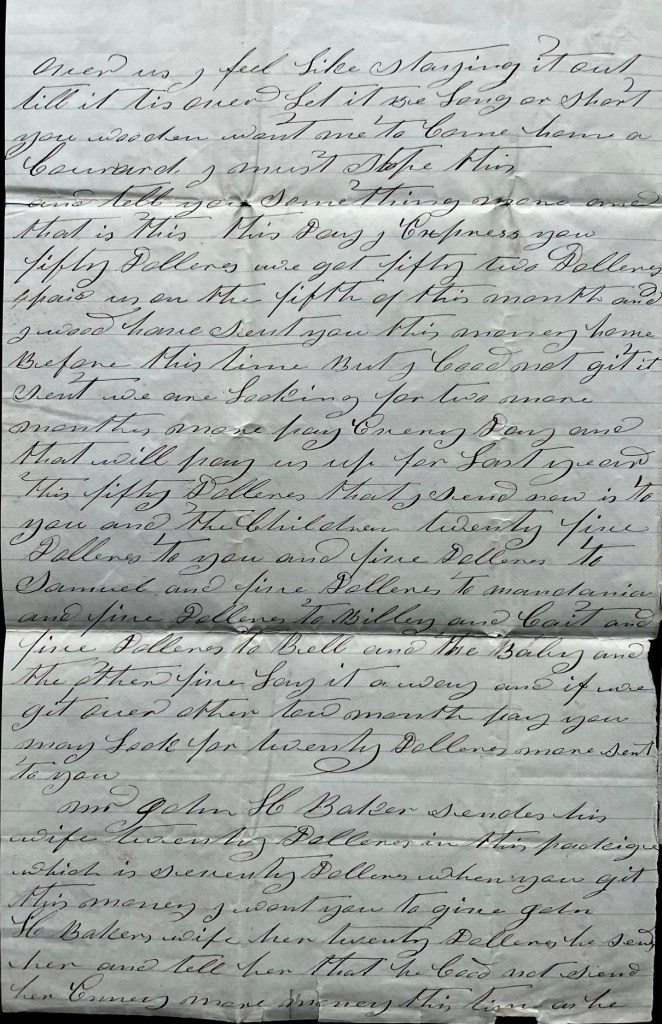 over us j feel like staying it out
till it tis over let it be long or short
you wooden want me to Come home a
Couward j must stope this
and tell you something more and
that is this this Day j Express you
fifty Dolleres we got fifty two Dolleres
paid us on the fifth of this month and
j wood have sent you this money home
Before this time But j Cood not git it
sent we are Looking for two more
monthes more pay Every Day and
that will pay us up for Last year
this fifty Dolleres that j send now is to
you and the Children twenty five
Dolleres to you and five Dolleres to
Samuel and five Dolleres to mandania
and five Dolleres to Billey and Cait and
five Dolleres to Bell and the Baby and
the other five Lay it a way and if we
git over other tow month pay you
may Look for twenty Dolleres more sent
to you
mr John H Baker sendes his
wife twenty Dolleres in this packige
which is seventy Dolleres when you git
this money j want you to give John
H Bakers wife her twenty Dolleres he send
her and tell her that he Cood not send
her Enney more money this time as he